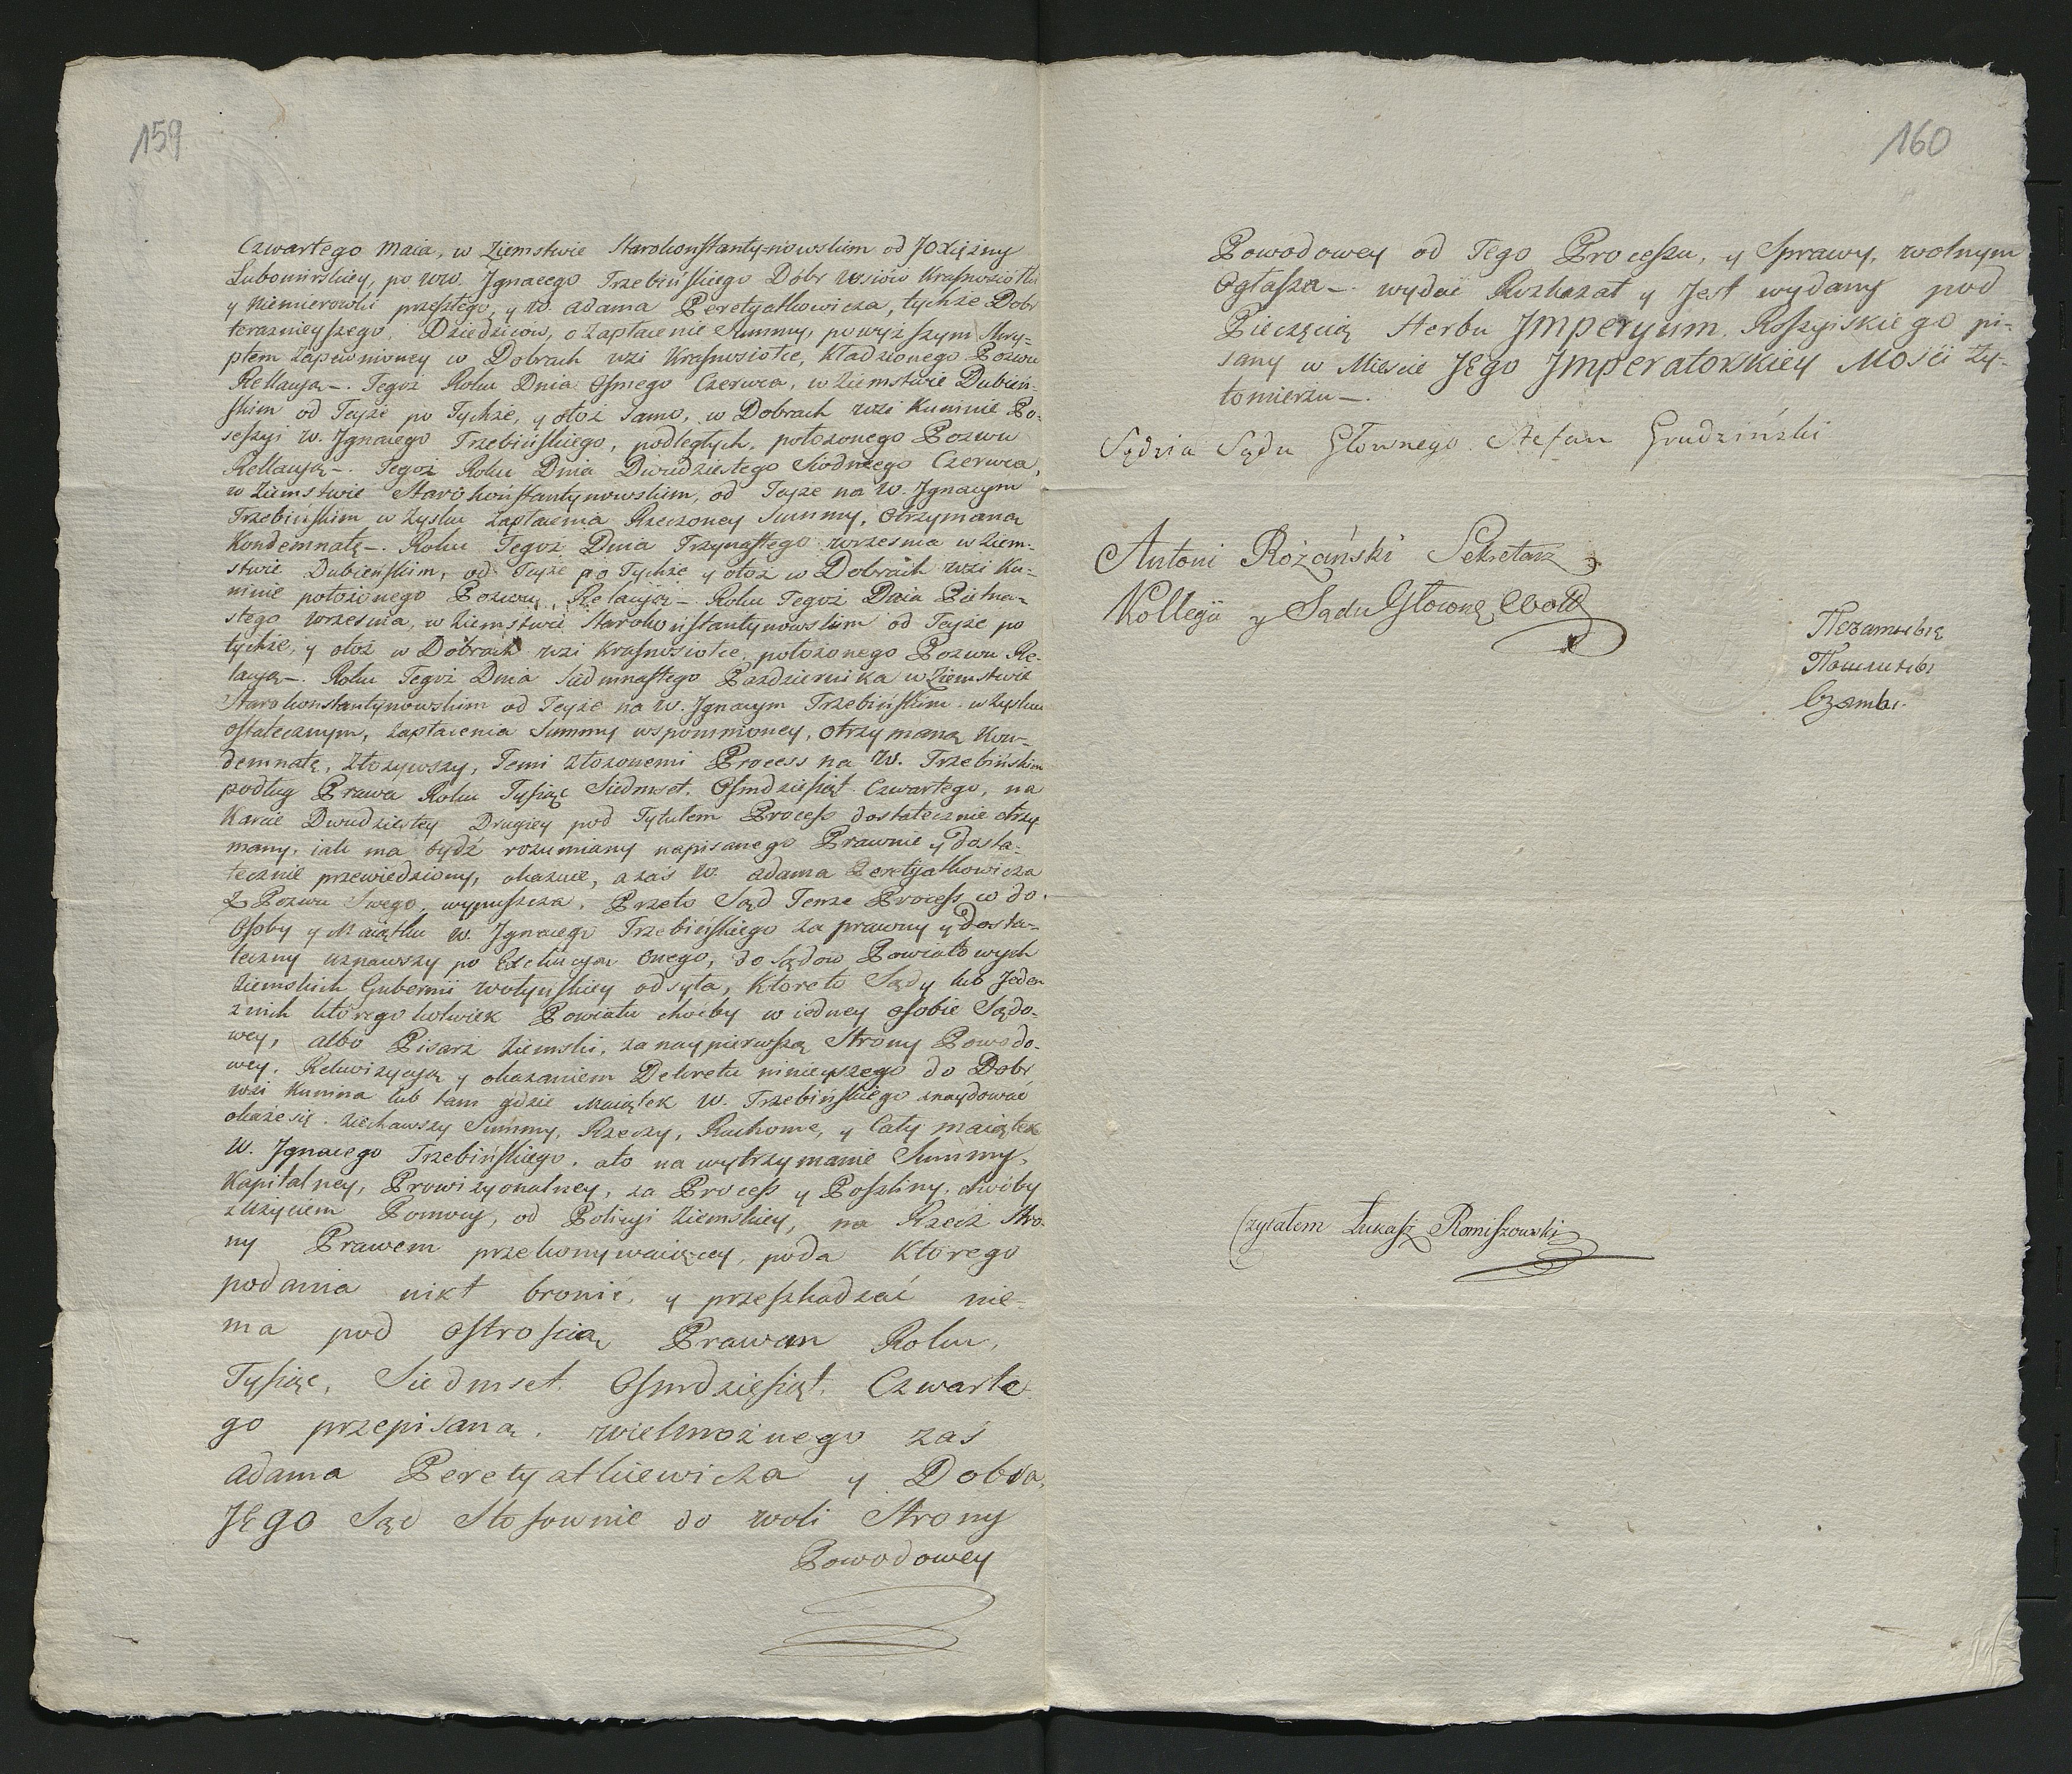 159
Czwartego Maia, w Ziemstwie Starokonstanty=nowskim od JOXiężny
Lubomirskiey, po WW. Jgnacego Trzebińskiego Dobr wsiów Krasnosiołki
y Niemierowki przeszłego, y W. Adama Peretyatkowicza, tychże Dobr
teraznieyszego, Dziedzicow, o zapłacenie Summy, powyższym Skry=
ptem zapewnioney w Dobrach wsi Krasnosiołce, kładzionego Pozwu
Rellacyą –. Tegoż Roku Dnia Osmego Czerwca, w Ziemstwie Dubień=
skim od Teyże po Tychże, y otoż samo, w Dobrach wsi Kuninie Po=
sessyi W. Jgnacego Trzebińskiego, podległych, położonego Pozwu
Rellacyą –. Tegoż Roku Dnia Dwudziestego Siodmego Czerwca,
w Ziemstwie Starokonstantynowskim, od Teyże na W. Jgnacym
Trzebińskim w Zysku zapłacenia Rzeczoney Summy, otrzymaną
Kondemnatę –. Roku Tegoż Dnia Trzynastego Września w Ziem=
stwie Dubieńskim, od Teyże po Tychże y otoż w Dobrach wsi Ku=
ninie położonego Pozwu, Relacyą – Roku Tegoż Dnia Pietna=
stego Września, w Ziemstwie Starokonstantynowskim od Teyże po
tychże, y otoż w Dobrach wsi Krasnosiołce, położonego Pozwu Re=
lacyą –. Roku Tegoż Dnia Siedmnastego Pazdziernika w Ziemstwie
Starokonstantynowskim od Teyże na W. Jgnacym Trzebińskim w Zysku
ostatecznym, zapłacenia Summy wspomnioney, otrzymaną Kon=
demnatę, złożywszy, Temi złożonemi Process na W. Trzebińskim
podług Prawa Roku Tysiąc Siedmset Osmdziesiąt Czwartego, na
Karcie Dwudziestey Drugiey pod Tytułem Process dostatecznie otrzy
many, iak ma bydź rozumiany napisanego Prawnie y dosta=
tecznie przewiedziony, okazuie, a zaś W. Adama Peretyatkowicza
z Pozwu Swego, wypuszcza. Przeto Sąd Tenże Process co do
Osoby y Maiątku W. Jgnacego Trzebińskiego za prawny y dosta=
teczny uznawszy po Exekucyą onego, do Sądow Powiatowych
Ziemskich Gubernii Wołyńskiey odsyła, Ktoreto Sądy lub Jeden
znich ktoregokolwiek Powiatu choćby w iedney osobie Sądo=
wey, albo Pisarz Ziemski, za naypierwszą Strony Powodo=
wey, Rekwizycyą y okazaniem Dekretu ninieyszego do Dobr
wsi Kunina lub tam gdzie Maiątek W. Trzebińskiego znaydować
okaże się, ziechawszy Summy, Rzeczy, Ruchome, y Cały maiątek
W. Jgnacego Trzebińskiego, ato na wytrzymanie Summy,
Kapitalney, Prowizyonalney, za Process y Poszliny, choćby
z Użyciem Pomocy, od Policyi Ziemskiey, na Rzecz Stro=
ny Prawem przekonywaiącey, poda Którego
podania nikt bronić, y przeszkadzać nie=
ma pod ostrością Prawem Roku,
Tysiąc, Siedmset Osmdziesiąt, Czwarte
go przepisaną. Wielmożnego zaś
Adama Peretyatkiewicza y Dobra,
JEgo Sąd Stosownie do woli Strony
Powodowey
160
Powodowey od Tego Processu, y Sprawy, wolnym
Ogłasza –. wydać Rozkazał y Jest wydany pod
Pieczęcią Herbu Jmperyum Rossyiskiego pi=
sany w Mieście JEgo Jmperatorskiey Mosci Zy=
tomierzu –.
Sędzia Sądu Głownego Stefan Grudziński
Antoni Rożański Sekretarz
Kollegii y Sądu Głowne
Пошлины
Взяты.
Czytałem Łukasz Romiszowski